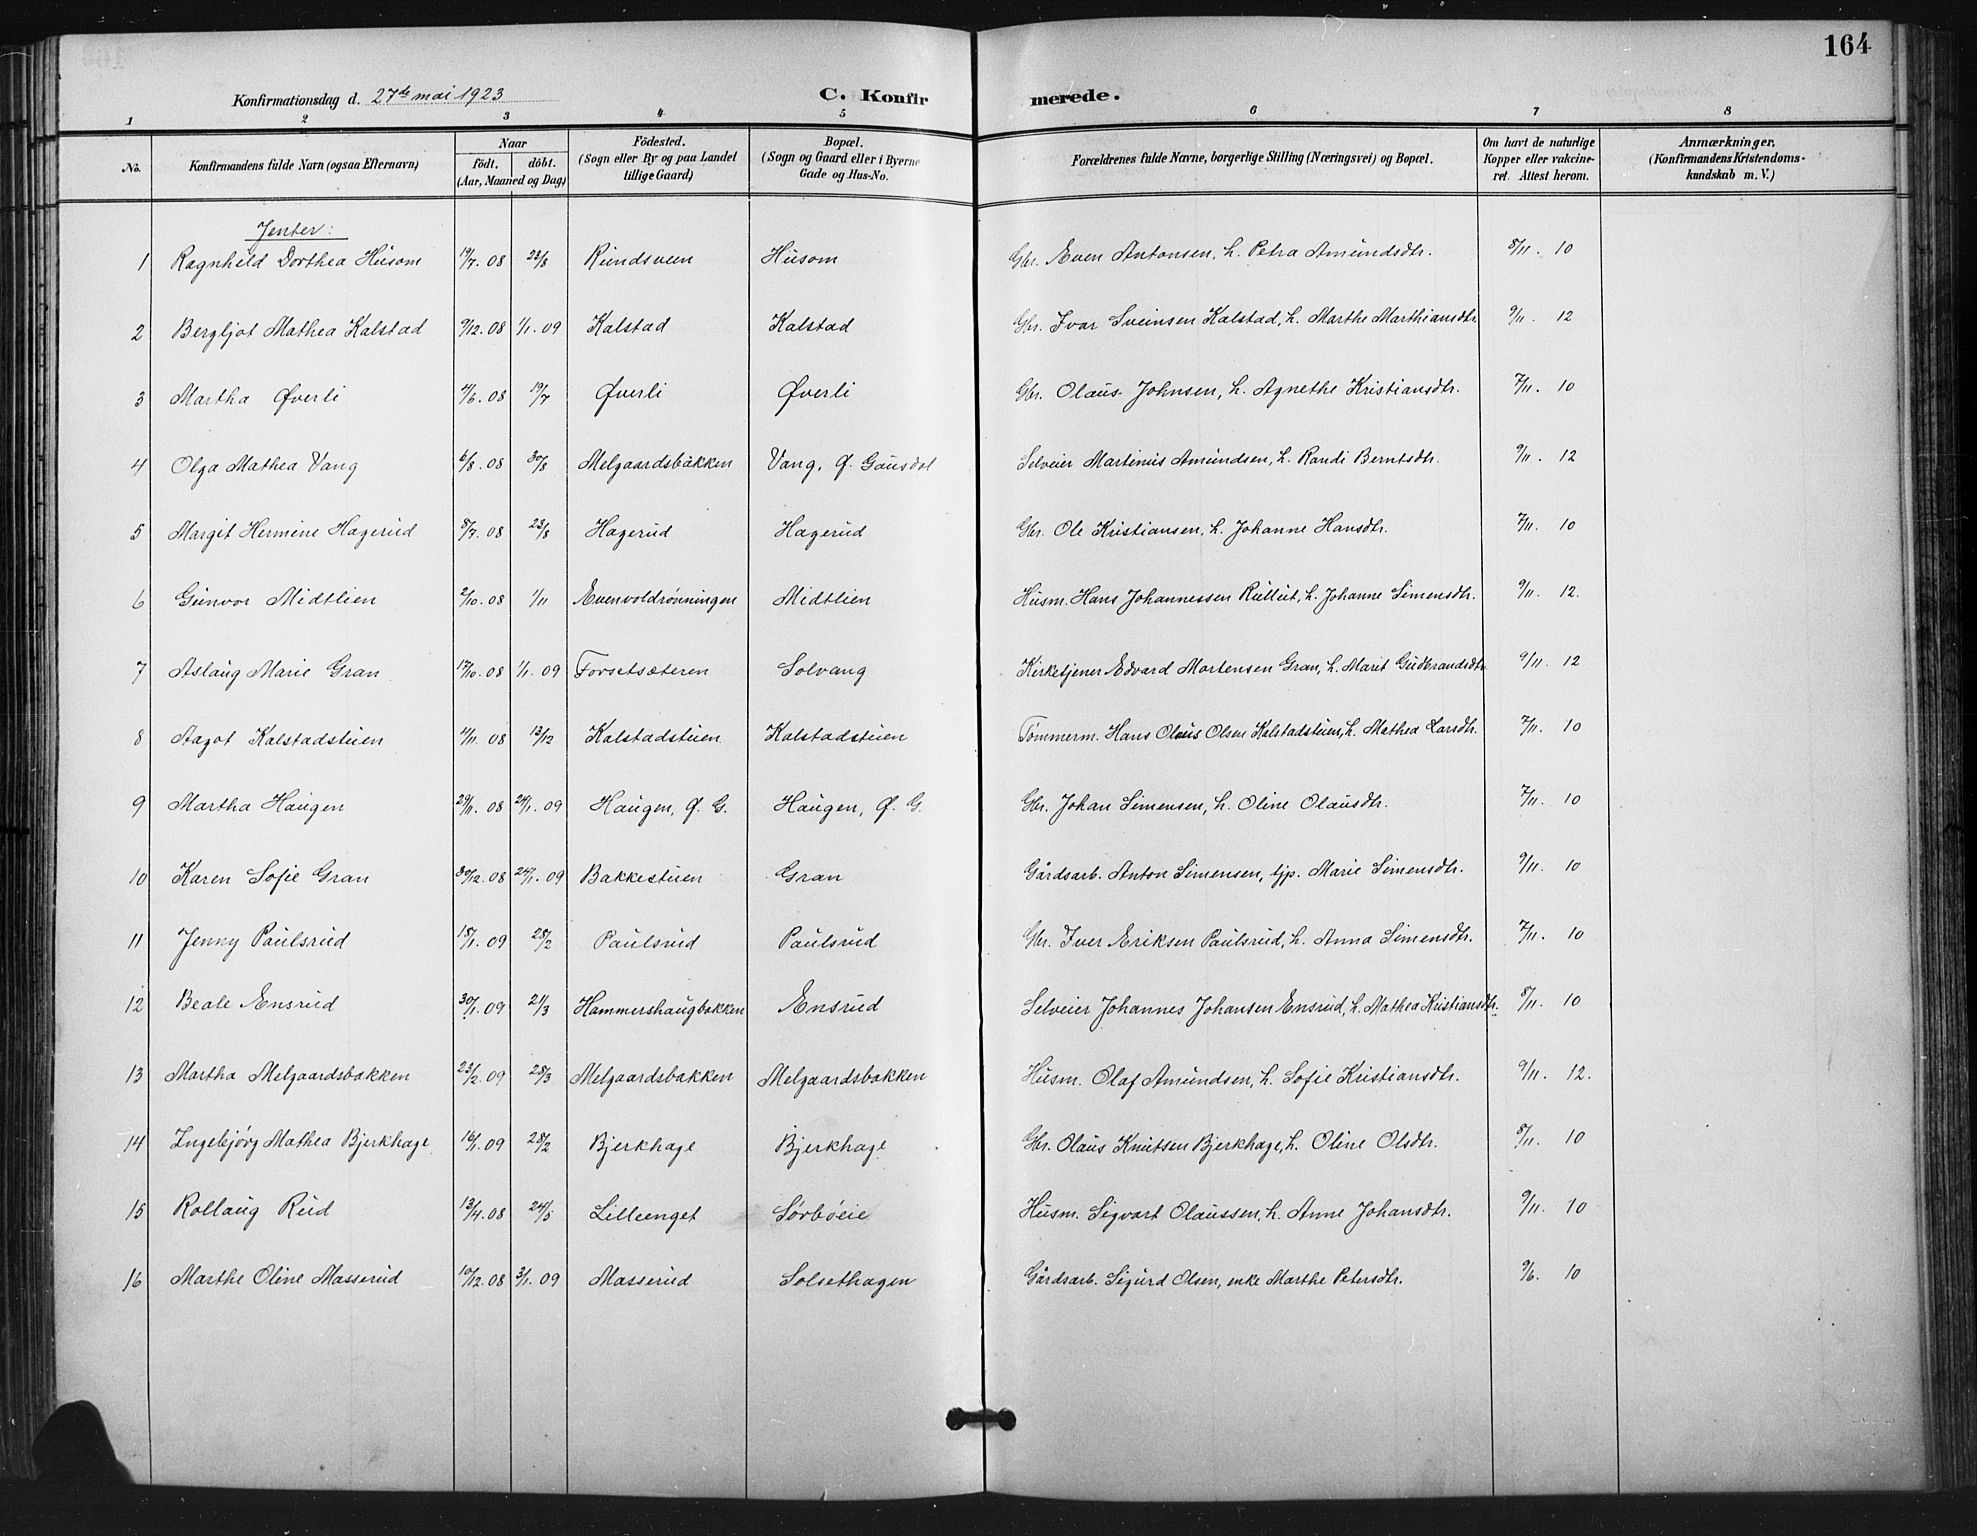 164
Konfirmationsdag d. 27de mai 1923 C. Konfirmerede.
1 2 3 4 5 6 7 8
No. Konfirmandens fulde Navn (ogsaa Efternavn) Naar födt. döbt. (Aar, Maaned og Dag) Födested. (Sogn eller By og paa Landet tillige Gaard) Bopæl. (Sogn og Gaard eller i Byerne Gade og Hus-No. Forældrenes fulde Navne, borgerlige Stilling (Næringsvei) og Bopæl. Om havt de naturlige Kopper eller vakcineret. Attest herom. Anmærkninger, (Konfirmandens Kristendomskundskab m. V.)
Jenter:
1 Ragnhild Dorthea Husom 19/7. 08 23/8 Rundsveen Husom Gbr. Even Antonsen, h. Petra Amundsdtr. 8/11. 10
2 Bergljot Mathea Kalstad 9/12. 08 1/1. 09 Kalstad Kalstad Gbr. Ivar Sveinsen Kalstad, h. Marthe Marthiansdtr. 9/11. 12
3 Martha Øverli 4/6. 08 19/7 Øverli Øverli Gbr. Olaus Johnsen, h. Agnethe Kristiansdtr. 7/11. 10
4 Olga Mathea Vang 6/8. 08 30/8 Melgaardsbakken Vang, Ø. Gausdal Selveier Martinus Amundsen, h. Randi Berntsdtr. 9/11. 12
5 Margit Hermine Hagerud 8/7. 08 23/8 Hagerud Hagerud Gbr. Ole Kristiansen, h. Johanne Hansdtr. 7/11. 10
6 Gunvor Midtlien 2/10. 08 1/11 Evenvoldrønningen Midtlien Husm. Hans Johannessen Rullut, h. Johanne Simensdtr. 9/11. 12.
7 Aslaug Marie Gran 17/10. 08 1/1. 09 Forsetsæteren Solvang Kirketjener Edvard Mortensen Gran, h. Marit Gudbrandsdtr. 9/11. 12
8 Aagot Kalstadstuen 4/11. 08 13/12 Kalstadstuen Kalstadstuen Tømmerm. Hans Olaus Olsen Kalstadstuen, h. Mathea Larsdtr. 7/11. 10
9 Martha Haugen 29/11. 08 24/1. 09 Haugen, Ø. G. Haugen, Ø. G. Gbr. Johan Simensen, h. Oline Olausdtr. 7/11. 10
10 Karen Sofie Gran 30/12. 08 24/1. 09 Bakkestuen Gran Gårdsarb. Anton Simensen, tjp. Marie Simensdtr. 9/11. 10
11 Jenny Paulsrud 18/1. 09 28/2 Paulsrud Paulsrud Gbr. Iver Eriksen Paulsrud, h. Anna Simensdtr. 7/11. 10
12 Beate Ensrud 30/1. 09 21/3 Hammershaugbakken Ensrud Selveier Johannes Johansen Ensrud, h. Mathea Kristiansdtr. 8/11. 10
13 Martha Melgaardsbakken 23/2. 09 28/3 Melgaardsbakken Melgaardsbakken Husm. Olaf Amundsen, h. Sofie Kristiansdtr. 9/11. 12.
14 Ingebjørg Mathea Bjerkhage 16/1. 09 28/2 Bjerkhage Bjerkhage Gbr. Olaus Knutsen Bjerkhage, h. Oline Olsdtr. 8/11. 10
15 Rollaug Rud 13/4. 08 24/5 Lilleenget Sørbøeie Husm. Sigvart Olaussen, h. Anne Johansdtr. 9/11. 10
16 Marthe Oline Masserud 10/12. 08 3/1. 09 Masserud Solsethagen Gårdsarb. Sigurd Olsen, enke Marthe Petersdtr. 9/6. 10